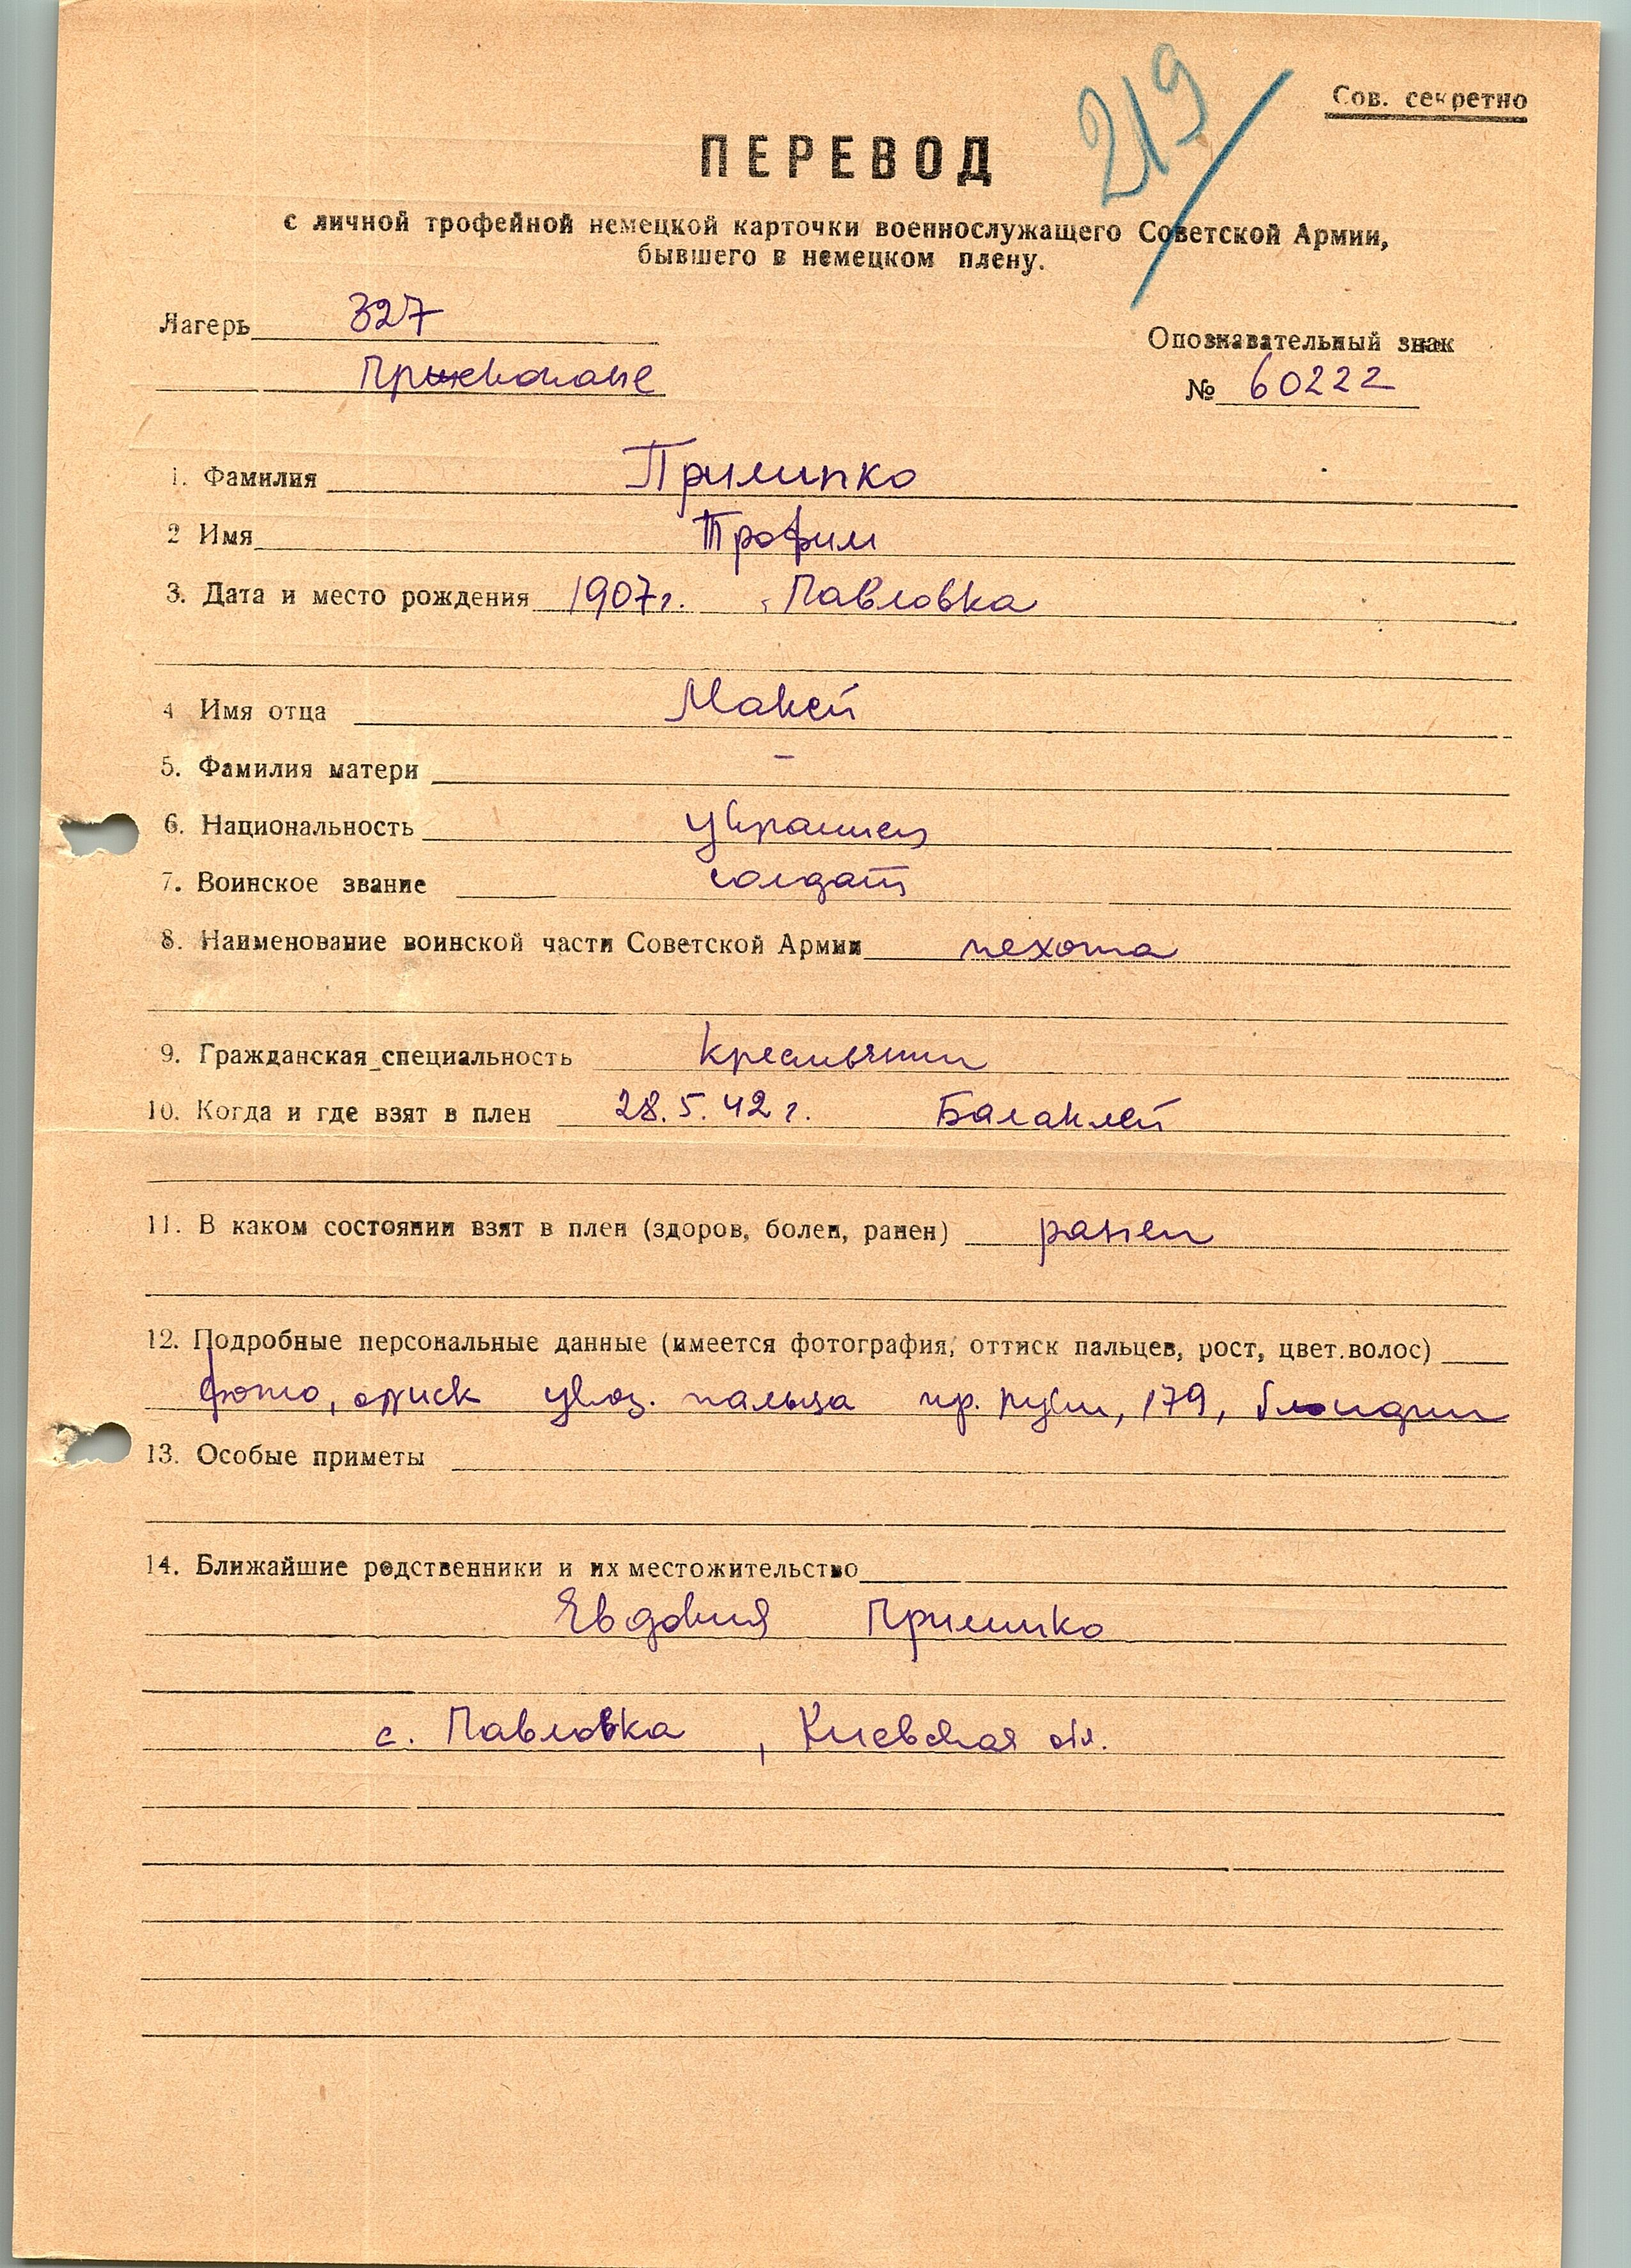 219
Сов. секретно
ПЕРЕВОД
с личной трофейной немецкой карточки военнослужащего Советской Армии,
бывшего в немецком плену.
Лагерь 327
Опознавательный знак
№ 60222
1. Фамилия Прилипко
2 Имя Трофим
3. Дата и место рождения 1907г. , Павловка
4 Имя отца Макей
5. Фамилия матери –
6. Национальность украинец
7. Воинское звание солдат
8. Наименование воинской части Советской Армии пехота
9. Гражданская специальность крестьянин
10. Когда и где взят в плен 28.5.42 г. Балаклей
11. В каком состоянии взят в плен (здоров, болен, ранен) ранен
12. Подробные персональные данные (имеется фотография, оттиск пальцев, рост, цвет.волос)
фото, указ. пальца пр. руки, 179, блондин
13. Особые приметы
14. Ближайшие родственники и их местожительство
Евдокия Прилипко
с. Павловка , Киевская обл.